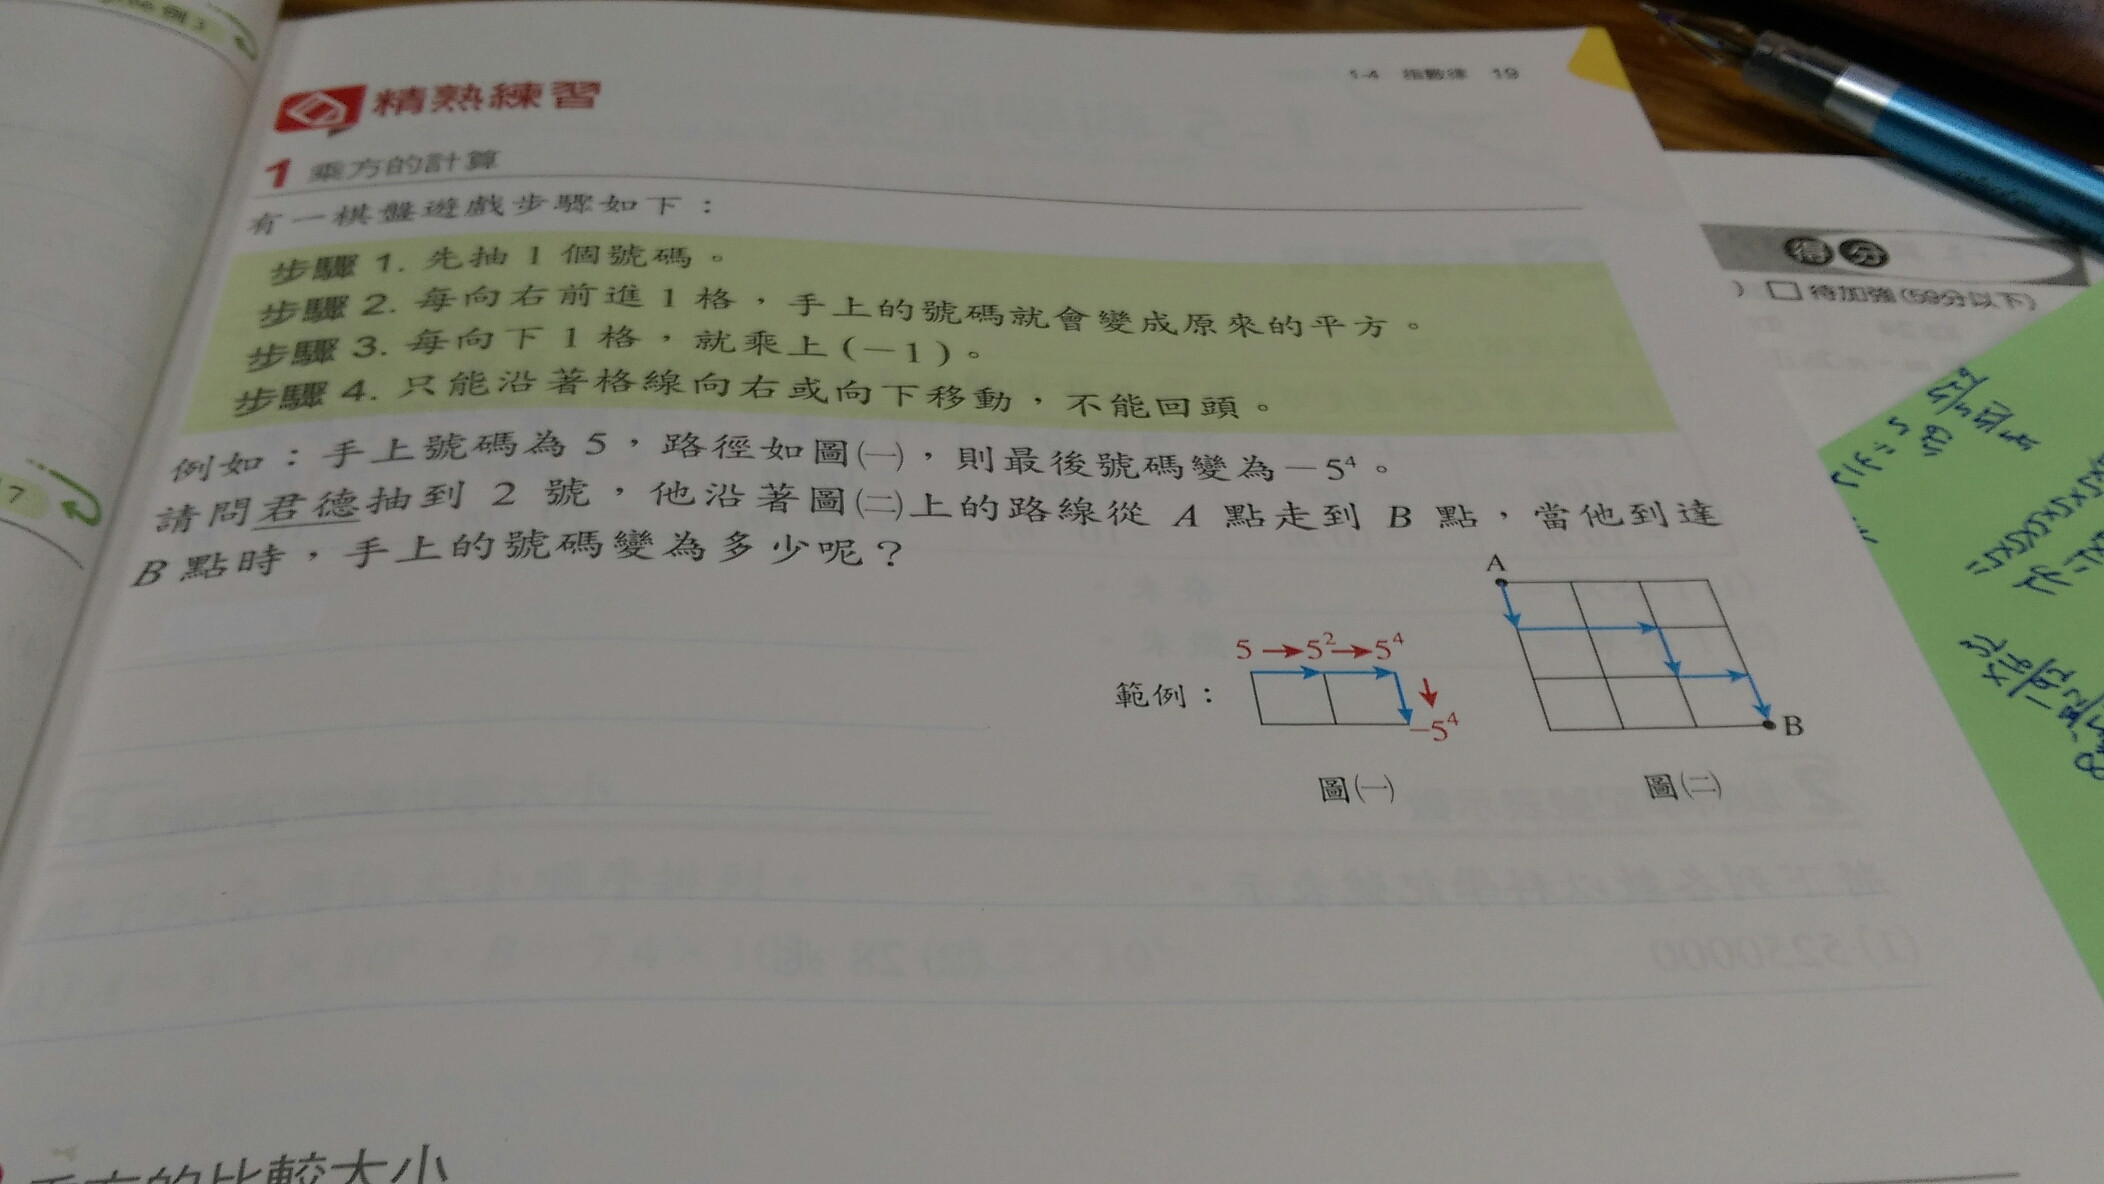 1-4 指數律 19
精熟練習
1 乘方的計算
有一棋盤遊戲步驟如下：
步驟 1. 先抽 1 個號碼。
步驟 2. 每向右前進 1 格，手上的號碼就會變成原來的平方。
步驟 3. 每向下 1 格，就乘上(－1)。
步驟 4. 只能沿著格線向右或向下移動，不能回頭。
例如：手上號碼為 5，路徑如圖㈠，則最後號碼變為－5⁴。
請問君德抽到 2 號，他沿著圖㈡上的路線從 A 點走到 B 點，當他到達
B 點時，手上的號碼變為多少呢？
範例：
5→5²→5⁴
－5⁴
圖㈠
A
B
圖㈡
得分
) □ 待加強(59分以下)
7
乘方的比較大小